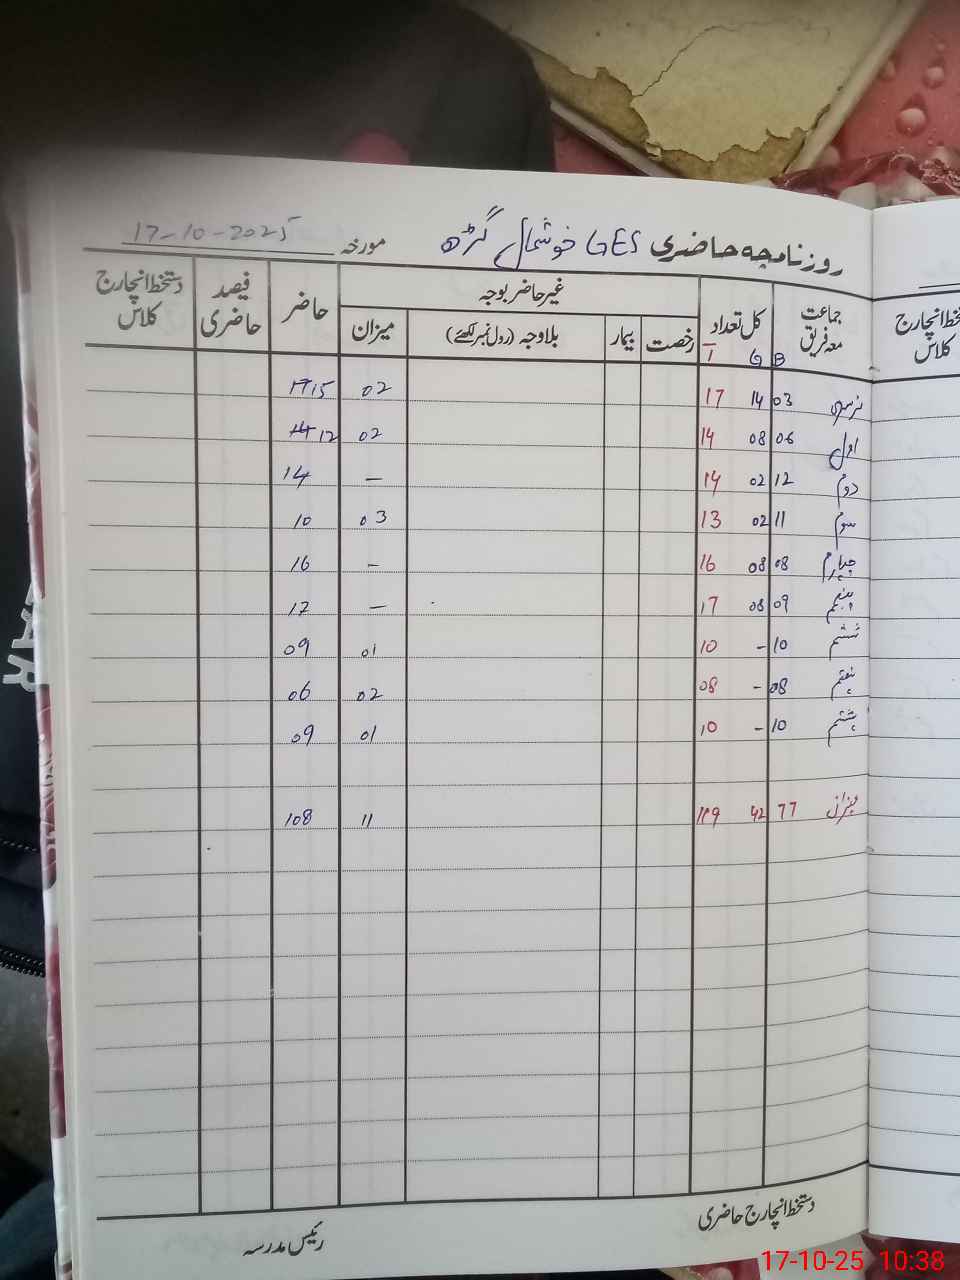 روزنامچہ حاضری GES خوشحال گڑھ مورخہ 17-10-2025
جماعت معہ فریق کل تعداد غیر حاضر بوجہ حاضر فیصد حاضری دستخط انچارج کلاس
رخصت بیمار بلاوجہ (رول نمبر لکھئے) میزان
B G T
نرسری 03 14 17 02 15
اول 06 08 14 02 12
دوم 12 02 14 — 14
سوم 11 02 13 03 10
چہارم 08 08 16 - 16
پنجم 09 08 17 — 17
ششم 10 - 10 01 09
ہفتم 08 - 08 02 06
ہشتم 10 - 10 01 09
میزان 77 42 119 11 108
دستخط انچارج حاضری
رئیس مدرسہ
دستخط انچارج کلاس
17-10-25 10:38